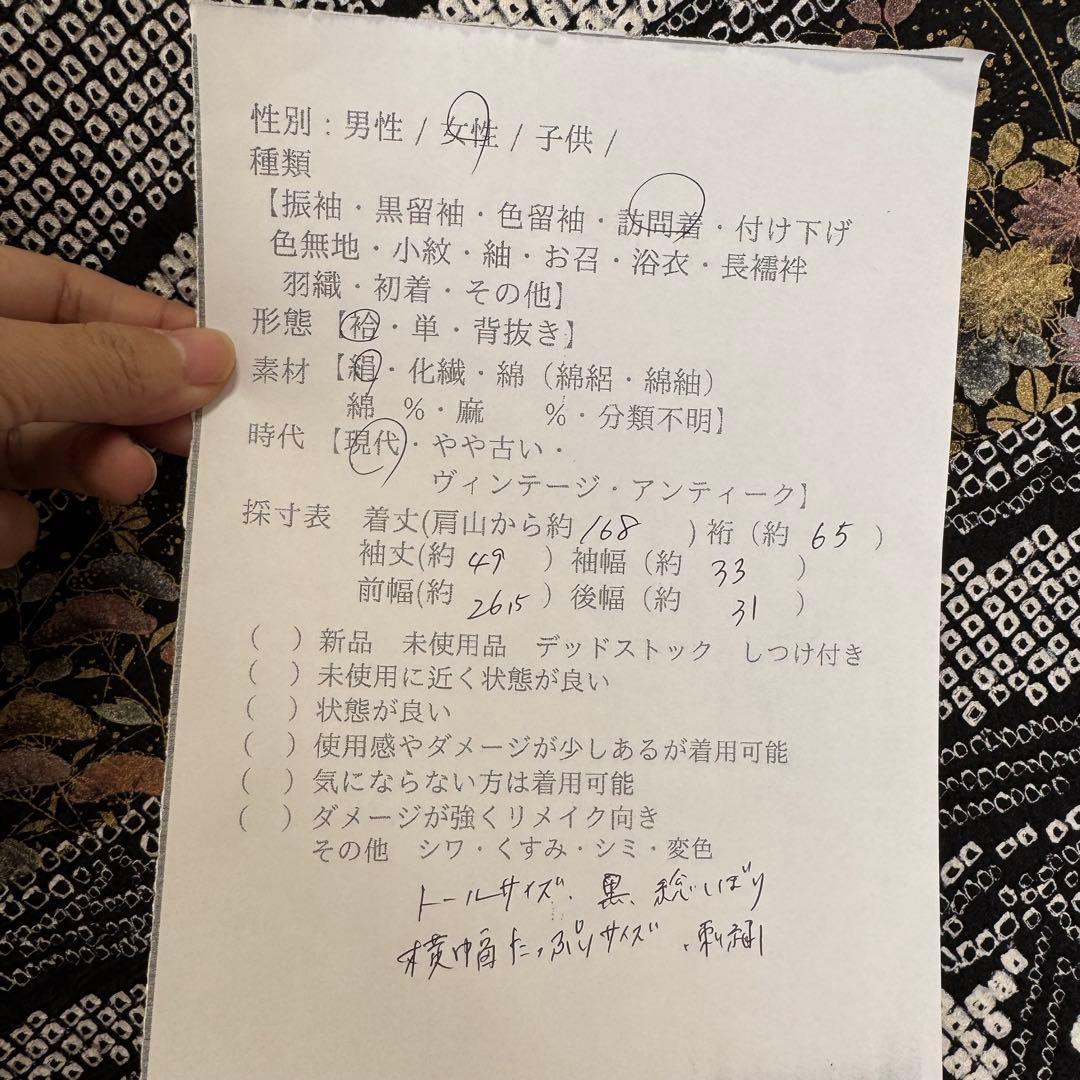 性別：男性 / 女性 / 子供 /
種類
【振袖・黒留袖・色留袖・訪問着・付け下げ
色無地・小紋・紬・お召・浴衣・長襦袢
羽織・初着・その他】
形態【袷・単・背抜き】
素材【絹・化繊・綿（綿絽・綿紬）
綿 %・麻 %・分類不明】
時代【現代・やや古い・
ヴィンテージ・アンティーク】
採寸表 着丈(肩山から約 168 ) 裄（約 65 ）
袖丈(約 49 ）袖幅（約 33 ）
前幅(約 26.5 ）後幅（約 31 ）
（ ）新品 未使用品 デッドストック しつけ付き
（ ）未使用に近く状態が良い
（ ）状態が良い
（ ）使用感やダメージが少しあるが着用可能
（ ）気にならない方は着用可能
（ ）ダメージが強くリメイク向き
その他 シワ・くすみ・シミ・変色
トールサイズ、黒、総しぼり
横幅たっぷりサイズ、刺繍